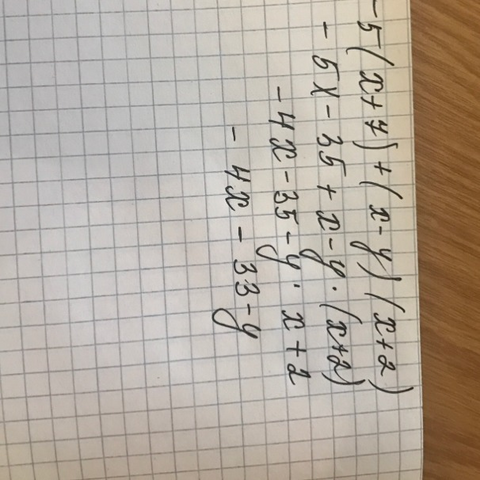 -5(x+7)+(x-y)(x+2)
-5x-35+x-y·(x+2)
-4x-35-y·x+2
-4x-33-y